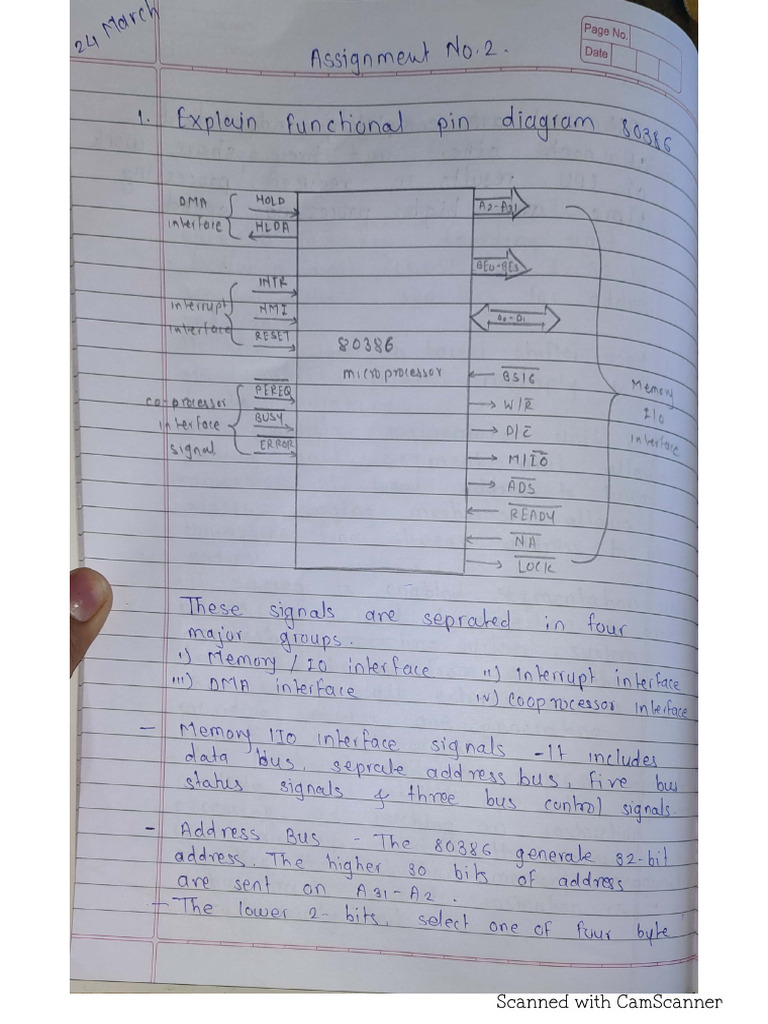 24 March
Page No.
Date
Assignment No. 2.
1. Explain functional pin diagram 80386
DMA
interface
HOLD
HLDA
interrupt
interface
INTR
NMI
RESET
coprocessor
interface
signal
PEREQ
BUSY
ERROR
80386
microprocessor
A2-A31
BE0-BE3
BS16
W/R
D/C
M/IO
ADS
READY
NA
LOCK
Memory
I/O
interface
These signals are seprated in four
major groups.
i) Memory / IO interface ii) interrupt interface
iii) DMA interface iv) cooprocessor interface
- Memory I/O interface signals - It includes
data bus, seprate address bus, five bus
status signals & three bus control signals.
- Address Bus - The 80386 generate 32-bit
address. The higher 30 bits of address
are sent on A31-A2.
- The lower 2-bits, select one of four byte
Scanned with CamScanner